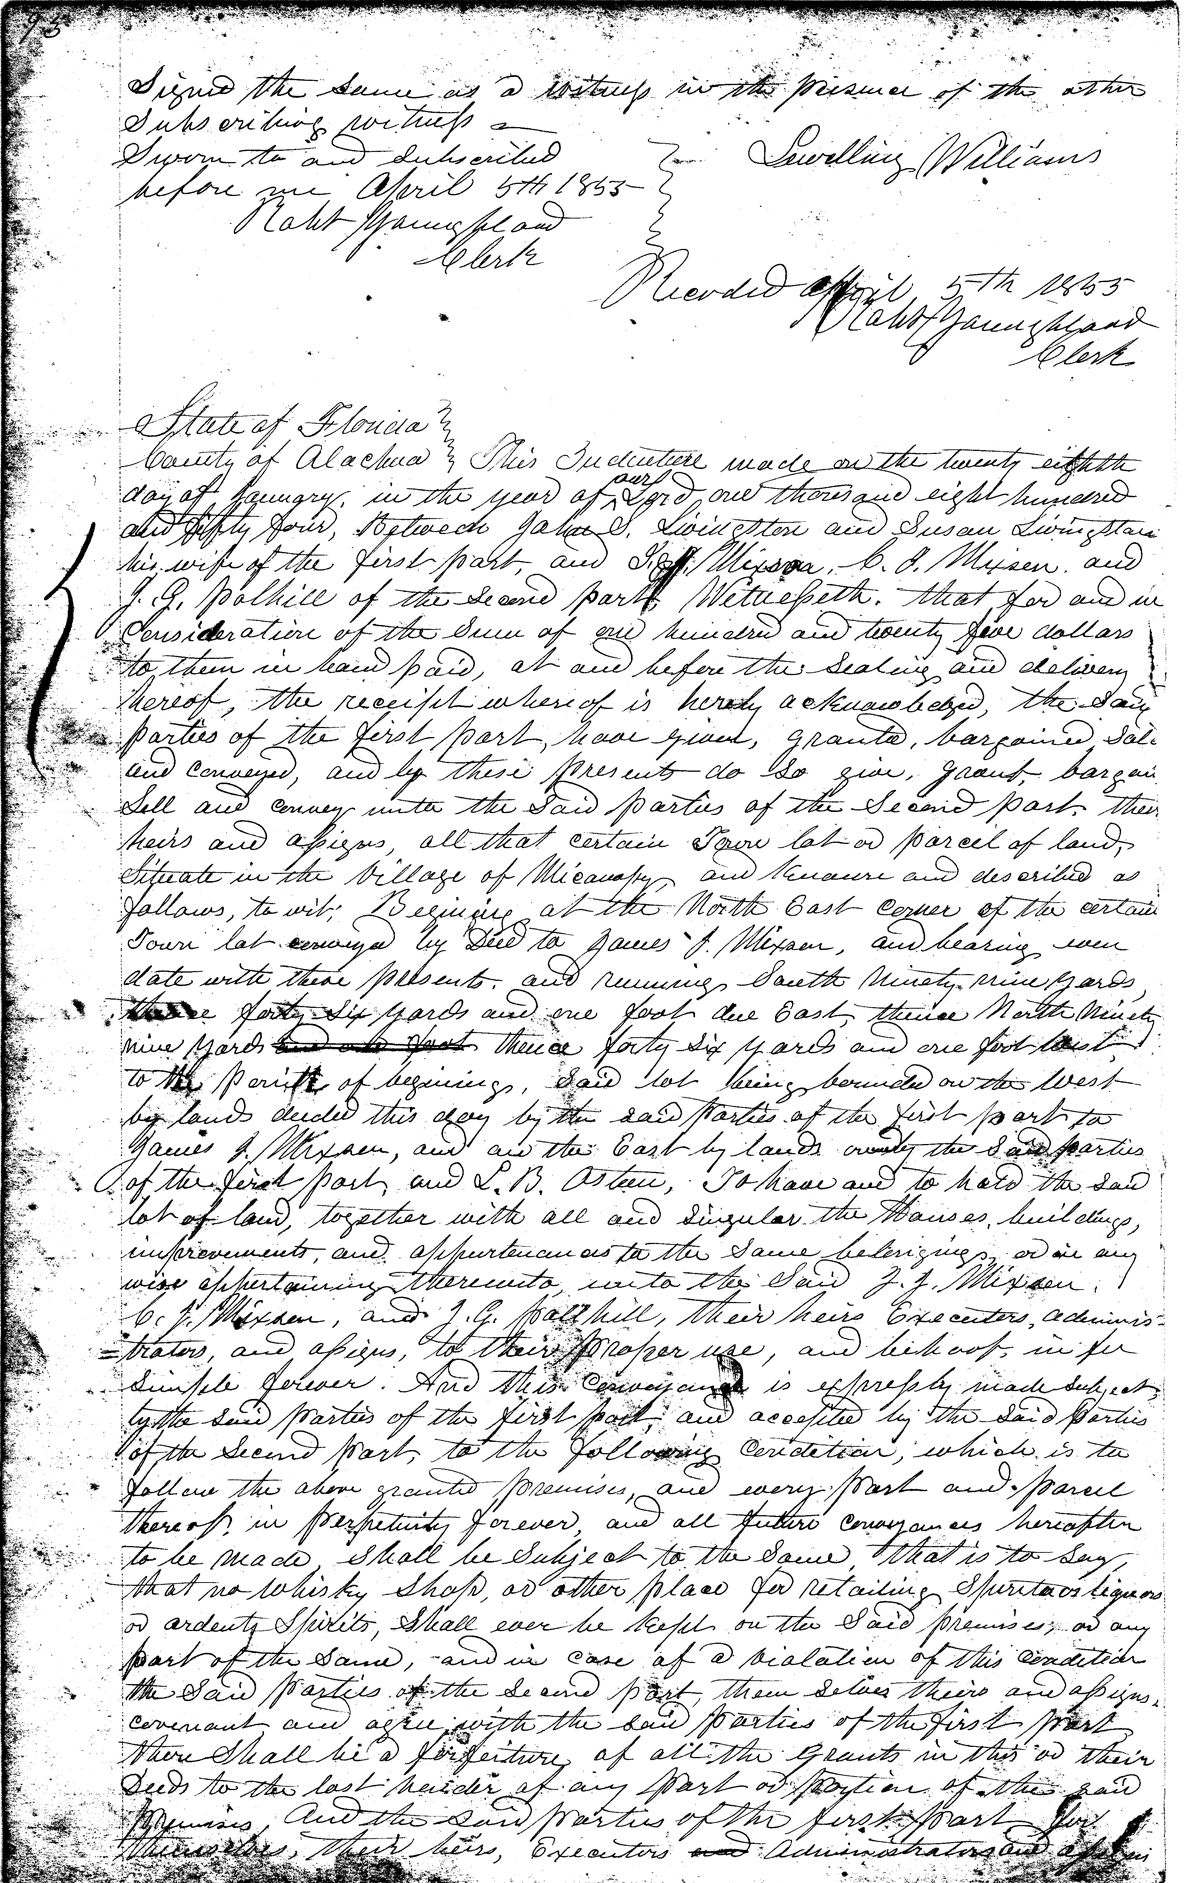 93
Signed the same as a witness in the presence of the other
Subscribing witness
Sworn to and Subscribed
before me April 5th 1855
Lewelling Williams
Robt Youngblood
Clerk
Recorded April 5th 1855
Robt Youngblood
Clerk
State of Florida
County of Alachua This Indenture made on the twenty eighth
day of January, in the year of our Lord, one thousand eight hundred
and fifty four, Between John S. Livingston and Susan Livingston
his wife of the first part, and J. Mixson, C. J. Mixson, and
J. G. Polhill of the Second part, Witnesseth. that for and in
Consideration of the Sum of one hundred and twenty five dollars
to them in hand paid, at and before the Sealing and delivery
hereof, the receipt whereof is hereby acknowledged, the Said
parties of the first part, have given, granted, bargained Sold
and conveyed, and by these presents do So give, grant, bargain
Sell and convey unto the Said parties of the Second part, their
heirs and assigns, all that certain Town lot or parcel of land,
Situate in the Village of Micanopy, and known and described as
follows, to wit; Begining at the North East corner of the certain
Town lot conveyed by Deed to James J. Mixson, and bearing even
date with these presents, and running South Ninety nine yards,
thence forty Six yards and one foot due East, thence North Ninety
nine yards and one foot thence forty Six yards and one foot West
to the point of begining, Said lot being bounded on the West
by lands deeded this day by the said parties of the first part to
James J. Mixson, and on the East by lands owned by the Said parties
of the first part, and L. B. Osteen, To have and to hold the said
lot of land, together with all and Singular the Houses, buildings,
improvements, and appurtenances to the Same belonging, or in any
wise appertaining thereunto, unto the Said J. J. Mixson,
C. J. Mixson, and J. G. Polhill, their heirs Executors, adminis-
=trators, and assigns, to their proper use, and behoof, in fee
Simple forever. And this conveyance is expressly made subject
by the said parties of the first part, and accepted by the said parties
of the Second part, to the following Condition, which is to
follow the above granted premises, and every part and parcel
thereof, in perpetuity forever, and all future conveyances hereafter
to be made, shall be Subject to the Same, that is to Say,
that no whisky Shop, or other place for retailing Spiritous liquors
or ardent Spirits, Shall ever be kept on the Said premises, or any
part of the Same, and in case of a violation of this condition
the Said parties of the Second part, them selves theirs and assigns,
covenant and agree with the said parties of the first part
there Shall be a forfeiture, of all the Grants in this or their
Deeds to the last holder of any part or portion of the said
premises, And the said parties of the first part for
themselves, their heirs, Executors and Administrators and assigns